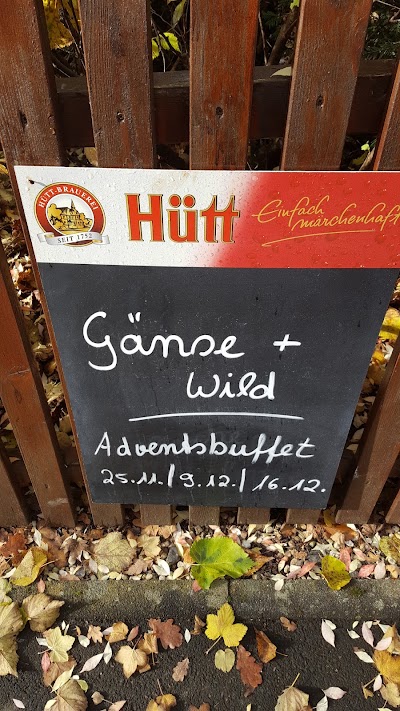 HÜTT-BRAUEREI
SEIT 1752
Hütt
Einfach
märchenhaft
Gänse +
Wild
Adventsbuffet
25.11./9.12./16.12.